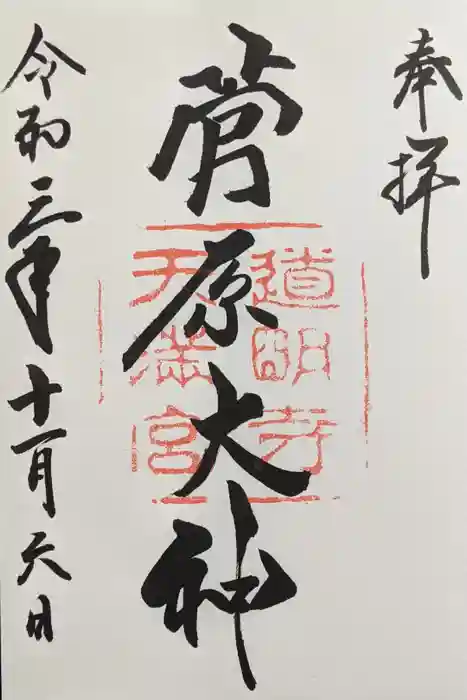 奉拝
道明寺
天満宮
菅原大神
令和三年十一月六日